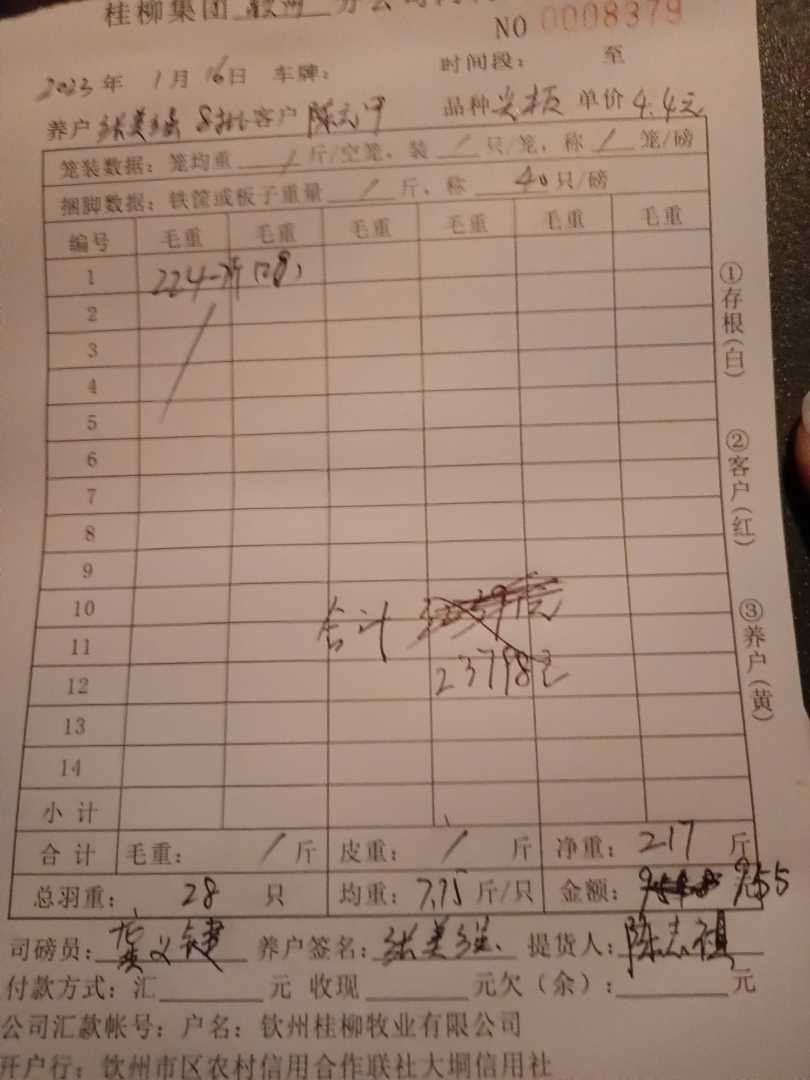 桂柳集团 钦州 分公司
NO 0008379
2023年 1月16日 车牌： 时间段： 至
养户 张美强 8批 客户 品种 单价 4.4元
笼装数据：笼均重 / 斤/空笼，装 / 只/笼，称 / 笼/磅
捆脚数据：铁筐或板子重量 / 斤，称 40 只/磅
编号 毛重 毛重 毛重 毛重 毛重 毛重
1 224-7斤(28)
2
3
4
5
6
7
8
9
10
11 合计
12 23798元
13
14
小计
合计 毛重： / 斤 皮重： / 斤 净重： 217 斤
总羽重： 28 只 均重： 7.75 斤/只 金额： 955
司磅员： 养户签名： 张美强 提货人： 陈志祖
付款方式：汇 元 收现 元欠（余）： 元
公司汇款帐号：户名：钦州桂柳牧业有限公司
开户行：钦州市区农村信用合作联社大垌信用社
①存根（白）
②客户（红）
③养户（黄）